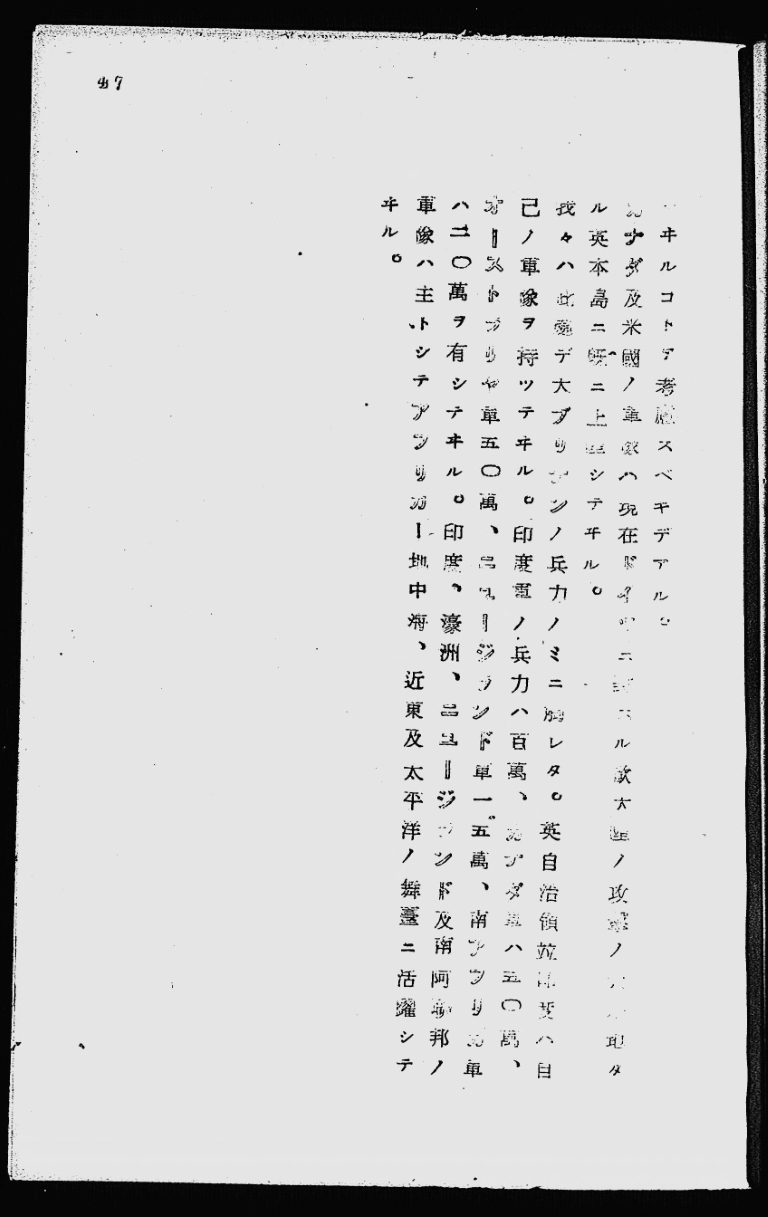 47
ヰルコトヲ考慮スベキデアル。
カナダ及米國ノ軍隊ハ現在ドイツニ對スル歐大陸ノ攻撃ノ 地タ
ル英本島ニ既ニ上陸シテヰル。
我々ハ此處デ大ブリテンノ兵力ノミニ觸レタ。英自治領竝印度ハ自
己ノ軍隊ヲ持ツテヰル。印度軍ノ兵力ハ百萬、カナダ軍ハ五〇萬、
オーストラリヤ軍五〇萬、ニュージランド軍一五萬、南アフリカ軍
ハ二〇萬ヲ有シテヰル。印度、濠洲、ニュージランド及南阿聯邦ノ
軍隊ハ主トシテアフリカー地中海、近東及太平洋ノ舞臺ニ活躍シテ
ヰル。